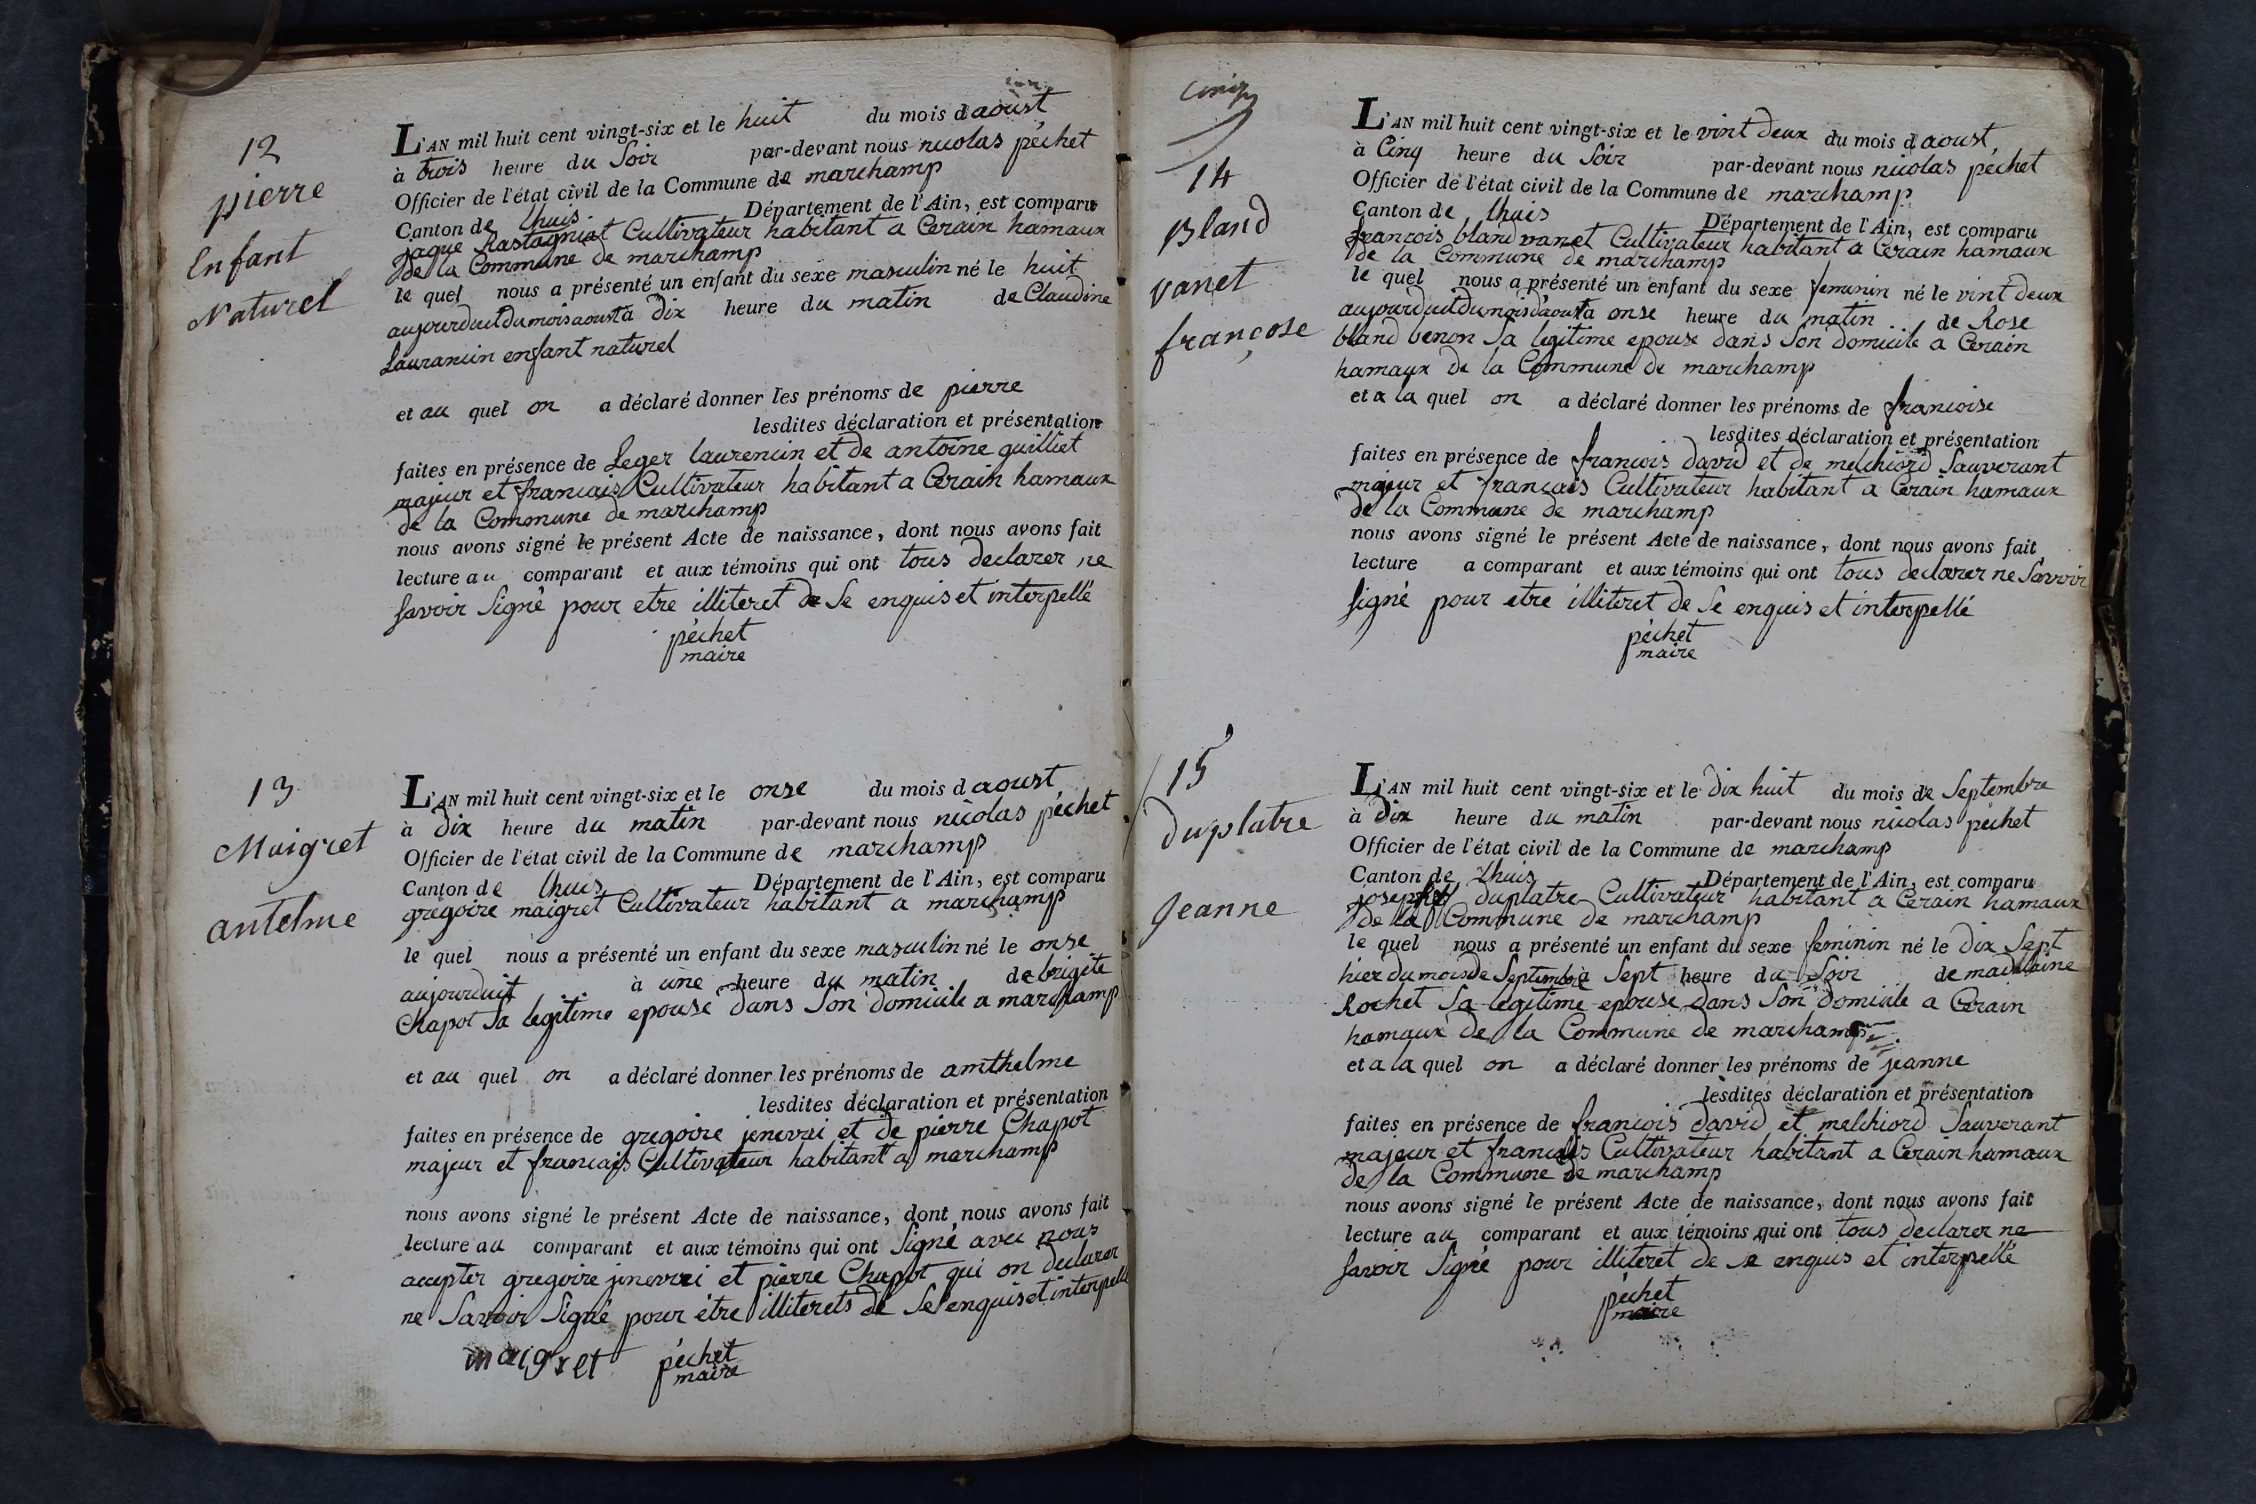 12
pierre
Enfant
Naturel
L'AN mil huit cent vingt-six et le huit du mois d aoust
à trois heure du Soir par-devant nous nicolas péchet
Officier de l'état civil de la Commune de marchamp
Canton de lhuis Département de l'Ain, est comparu
jaque Rastagniat Cultivateur habitant a Cerain hamaux
de la Commune de marchamp
le quel nous a présenté un enfant du sexe masculin né le huit
aujourduit du mois aoust à dix heure du matin de Claudine
Laurancin enfant naturel
et au quel on a déclaré donner les prénoms de pierre
lesdites déclaration et présentation
faites en présence de Leger laurencin et de antoine guilliet
majeur et francais Cultivateur habitant a Cerain hamaux
de la Commune de marchamp
nous avons signé le présent Acte de naissance, dont nous avons fait
lecture au comparant et aux témoins qui ont tous declarer ne
Savoir Signé pour etre illiteret de Se enquis et interpellé
péchet
maire
13
Maigret
antelme
L'AN mil huit cent vingt-six et le onse du mois d aoust
à dix heure du matin par-devant nous nicolas péchet
Officier de l'état civil de la Commune de marchamp
Canton de lhuis Département de l'Ain, est comparu
gregoire maigret Cultivateur habitant a marchamp
le quel nous a présenté un enfant du sexe masculin né le onse
aujourduit à une heure du matin de brigite
Chapot Sa legitime epouse dans Son domicile a marchamp
et au quel on a déclaré donner les prénoms de amthelme
lesdites déclaration et présentation
faites en présence de gregoire jenevrai et de pierre Chapot
majeur et francais Cultivateur habitant a marchamp
nous avons signé le présent Acte de naissance, dont nous avons fait
lecture au comparant et aux témoins qui ont Signé avec nous
accepter gregoire jenevrei et pierre Chapot qui on declarer
ne Savoir Signé pour étre illiterets de Se enquis et interpellé
maigret péchet
maire
14
Bland
vanet
françose
L'AN mil huit cent vingt-six et le vint deux du mois d aoust
à Cinq heure du Soir par-devant nous nicolas péchet
Officier de l'état civil de la Commune de marchamp
Canton de lhuis Département de l'Ain, est comparu
francois bland vanet Cultivateur habitant a Cerain hamaux
de la Commune de marchamp
le quel nous a présenté un enfant du sexe feminin né le vint deux
aujourduit du mois daoust à onse heure du matin de Rose
bland benon Sa legitime epouse dans Son domicile a Cerain
hamaux de la Commune de marchamp
et a la quel on a déclaré donner les prénoms de francoise
lesdites déclaration et présentation
faites en présence de francois david et de melchiord Sauverant
majeur et francais Cultivateur habitant a Cerain hamaux
de la Commune de marchamp
nous avons signé le présent Acte de naissance, dont nous avons fait
lecture a comparant et aux témoins qui ont tous declarer ne Savoir
Signé pour etre illiteret de Se enquis et interpellé
péchet
maire
15
duplatre
Jeanne
L'AN mil huit cent vingt-six et le dix huit du mois de Septembre
à dix heure du matin par-devant nous nicolas péchet
Officier de l'état civil de la Commune de marchamp
Canton de lhuis Département de l'Ain, est comparu
duplatre Cultivateur habitant a Cerain hamaux
de la Commune de marchamp
le quel nous a présenté un enfant du sexe feminin né le dix Sept
hier du mois de Septembre à Sept heure du Soir de madelaine
Rochet Sa legitime epouse dans Son domicile a Cerain
hamaux de la Commune de marchamp
et a la quel on a déclaré donner les prénoms de jeanne
lesdites déclaration et présentation
faites en présence de francois david et melchiord Sauverant
majeur et francais Cultivateur habitant a Cerain hamaux
de la Commune de marchamp
nous avons signé le présent Acte de naissance, dont nous avons fait
lecture au comparant et aux témoins qui ont tous declarer ne
Savoir Signé pour illiteret de se enquis et interpellé
péchet
maire